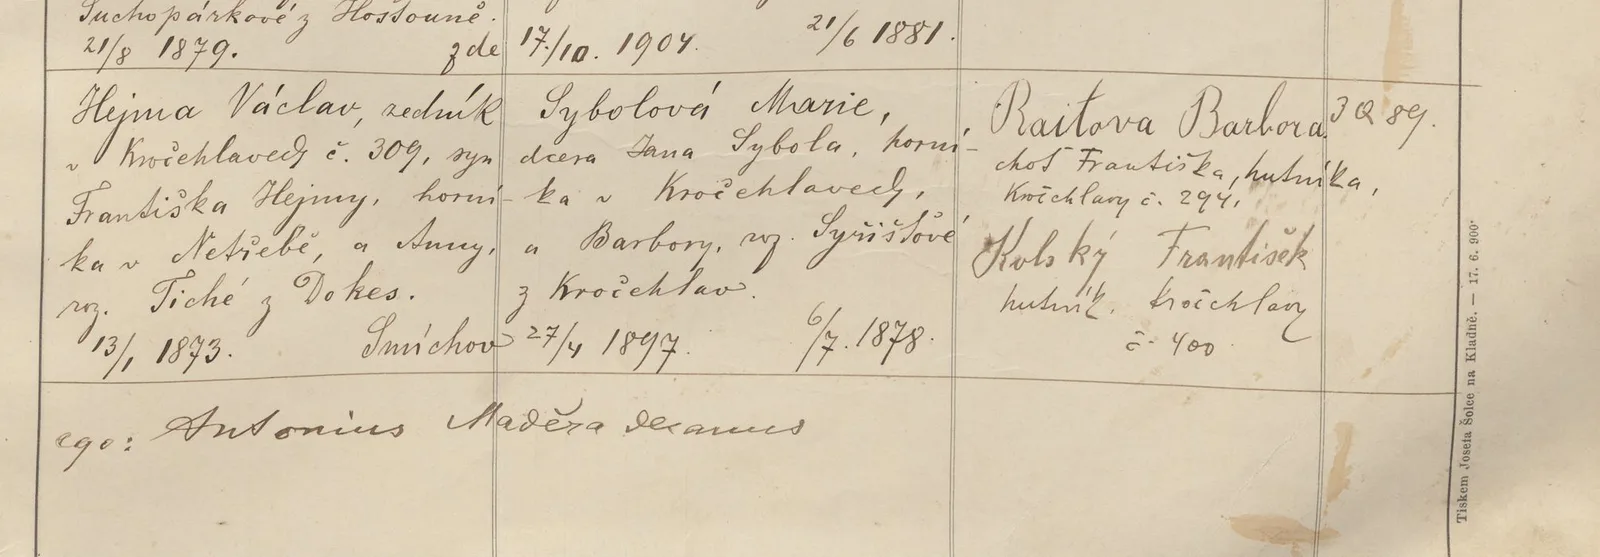 Suchopárkové z Hostouně.
21/8 1879. zde
17./10. 1904. 21/6 1881.
Hejma Václav, zedník
v Kročehlavech č. 309, syn
Františka Hejmy, horní-
ka v Netřebě, a Anny,
roz. Tiché z Dokes.
13/1 1873. Smíchov
Sybolová Marie,
dcera Jana Sybola, horní-
ka v Kročehlavech,
a Barbory, roz. Syřišťové
z Kročehlav.
27/4 1897. 6/7. 1878.
Raitova Barbora
choť Františka, hutníka,
Kročehlavy č. 294,
Kolský František
hutník. Kročehlavy
č. 400
89.
ego: Antonius Maděra decanus
Tiskem Josefa Šolce na Kladně. — 17. 6. 900.